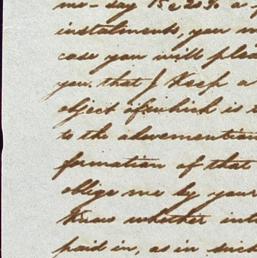 me - say 15 c 20%
instalments, you
case you will
you, that I Keep a
object of which is
to the abovementioned
formation of that
oblige me by your
Know whether
paid in, as in such